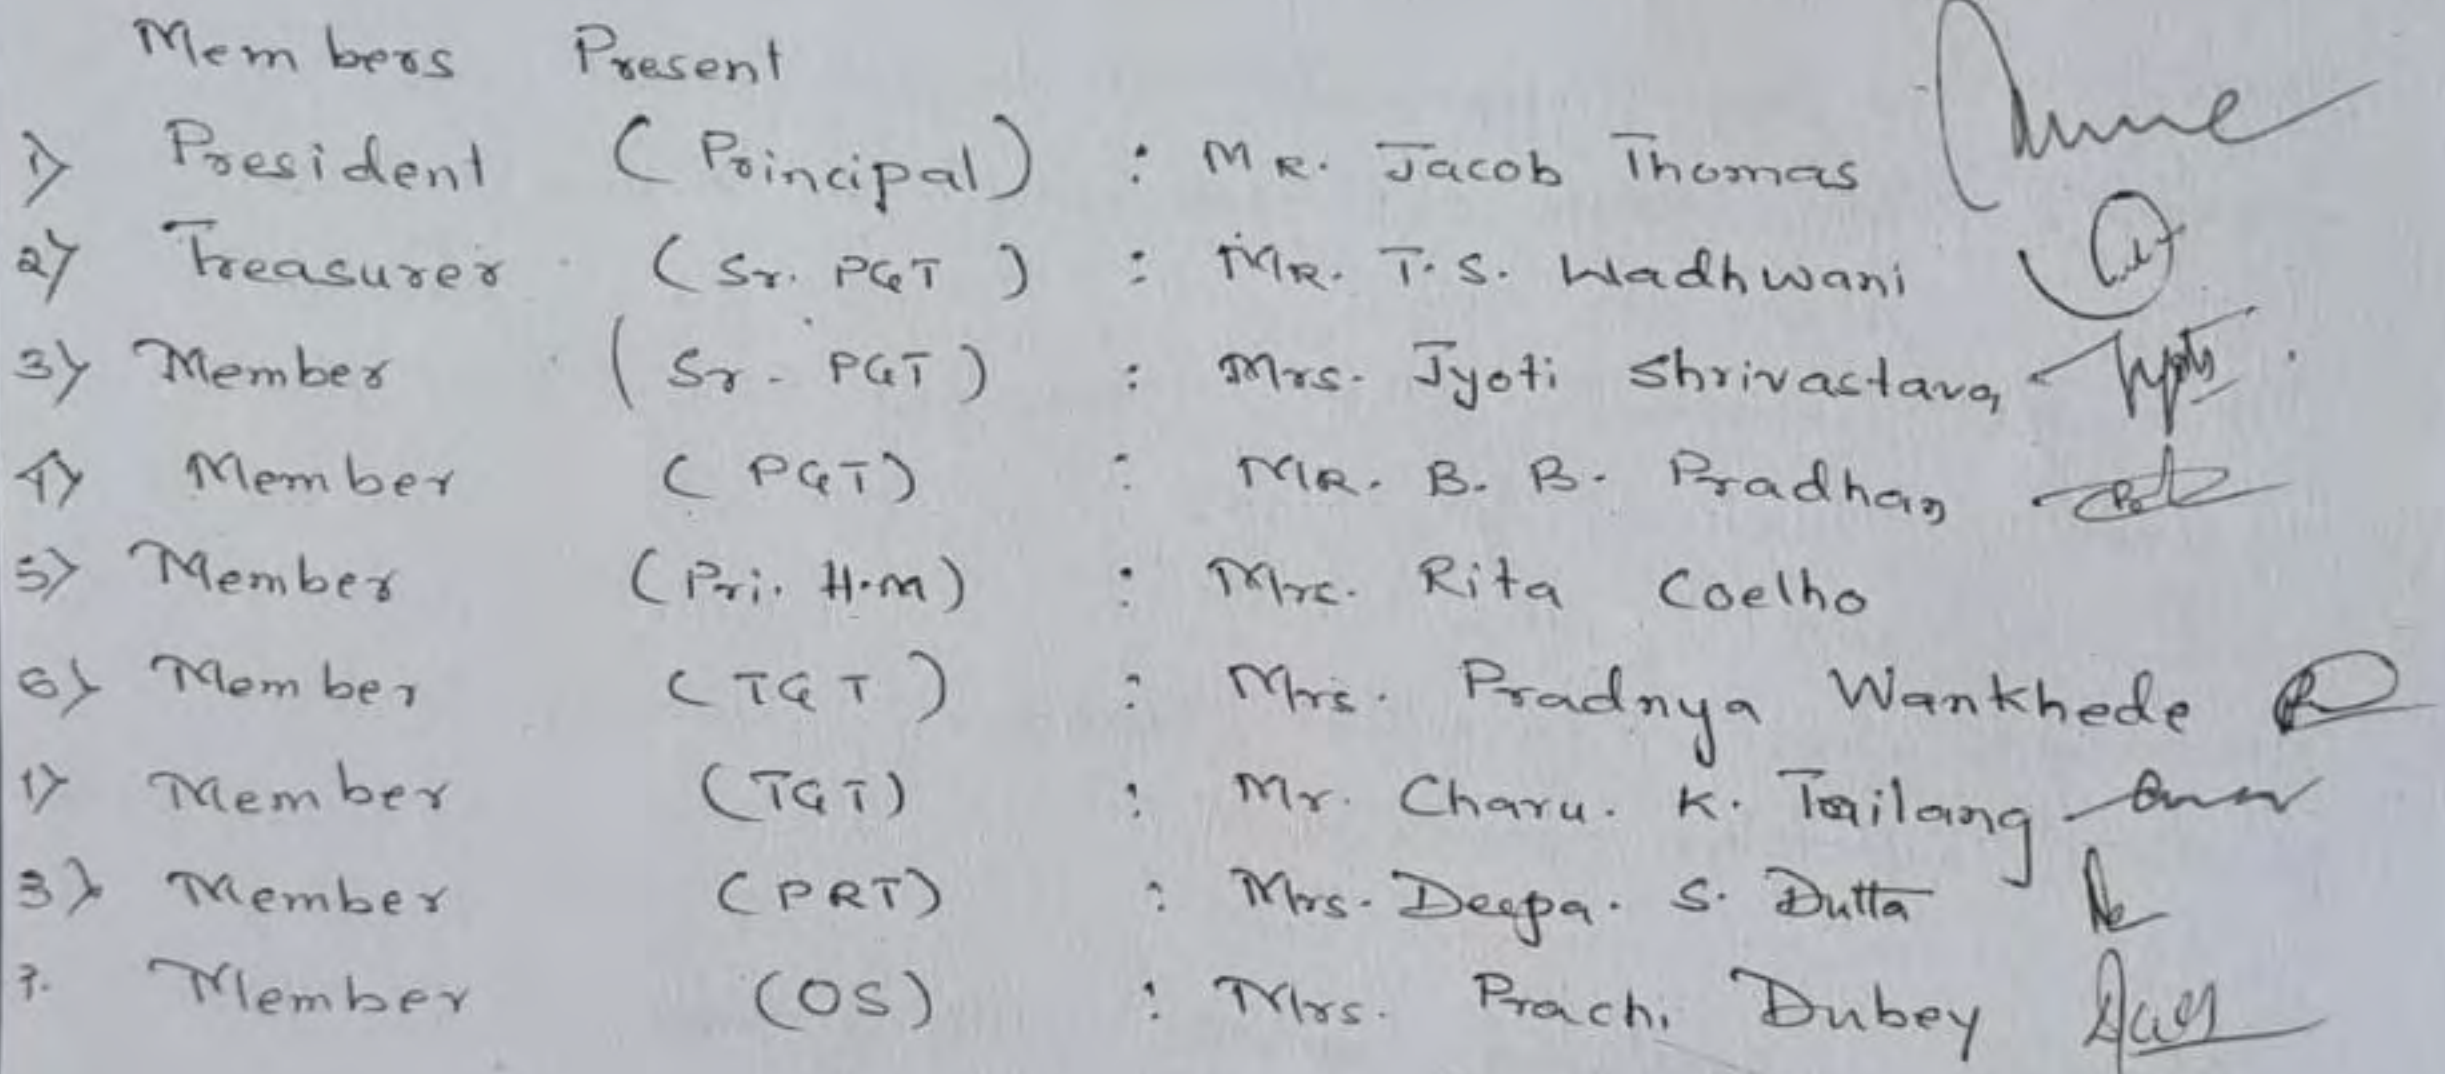 Members Present
1) President (Principal) : MR. Jacob Thomas
2) Treasurer (Sr. PGT) : MR. T. S. Wadhwani
3) Member (Sr. PGT) : Mrs. Jyoti Shrivastava
4) Member (PGT) : MR. B. B. Pradhan
5) Member (Pri. H.M) : Mrs. Rita Coelho
6) Member (TGT) : Mrs. Pradnya Wankhede
7) Member (TGT) : Mr. Charu. K. Tailang
8) Member (PRT) : Mrs. Deepa. S. Dutta
9. Member (OS) : Mrs. Prachi Dubey